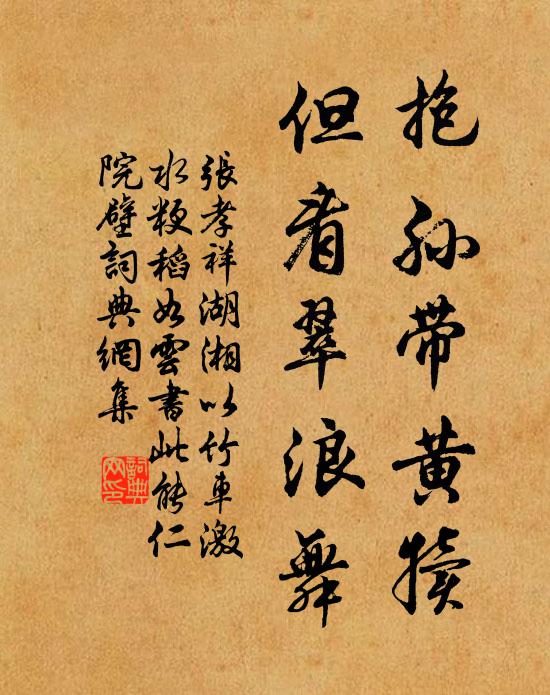 抱孙带黄犊
但看翠浪舞
張孝祥湖湘以竹车激
水粳稻如雲書此能仁
院壁詞典網集
詞典网印